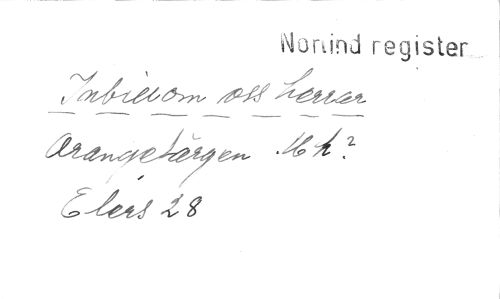 Norlind register
Inbillom oss herrar
Orangefärgen Mk?
Elers 28